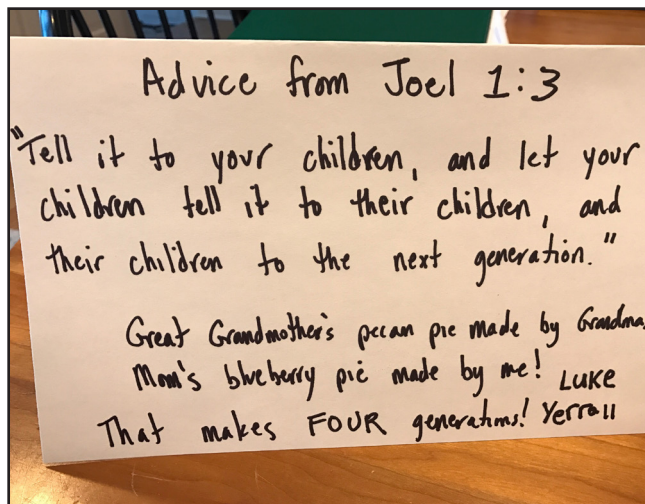 Advice from Joel 1:3
"Tell it to your children, and let your
children tell it to their children, and
their children to the next generation."
Great Grandmother's pecan pie made by Grandma,
Mom's blueberry pie made by me! LUKE
That makes FOUR generations! Yerrall